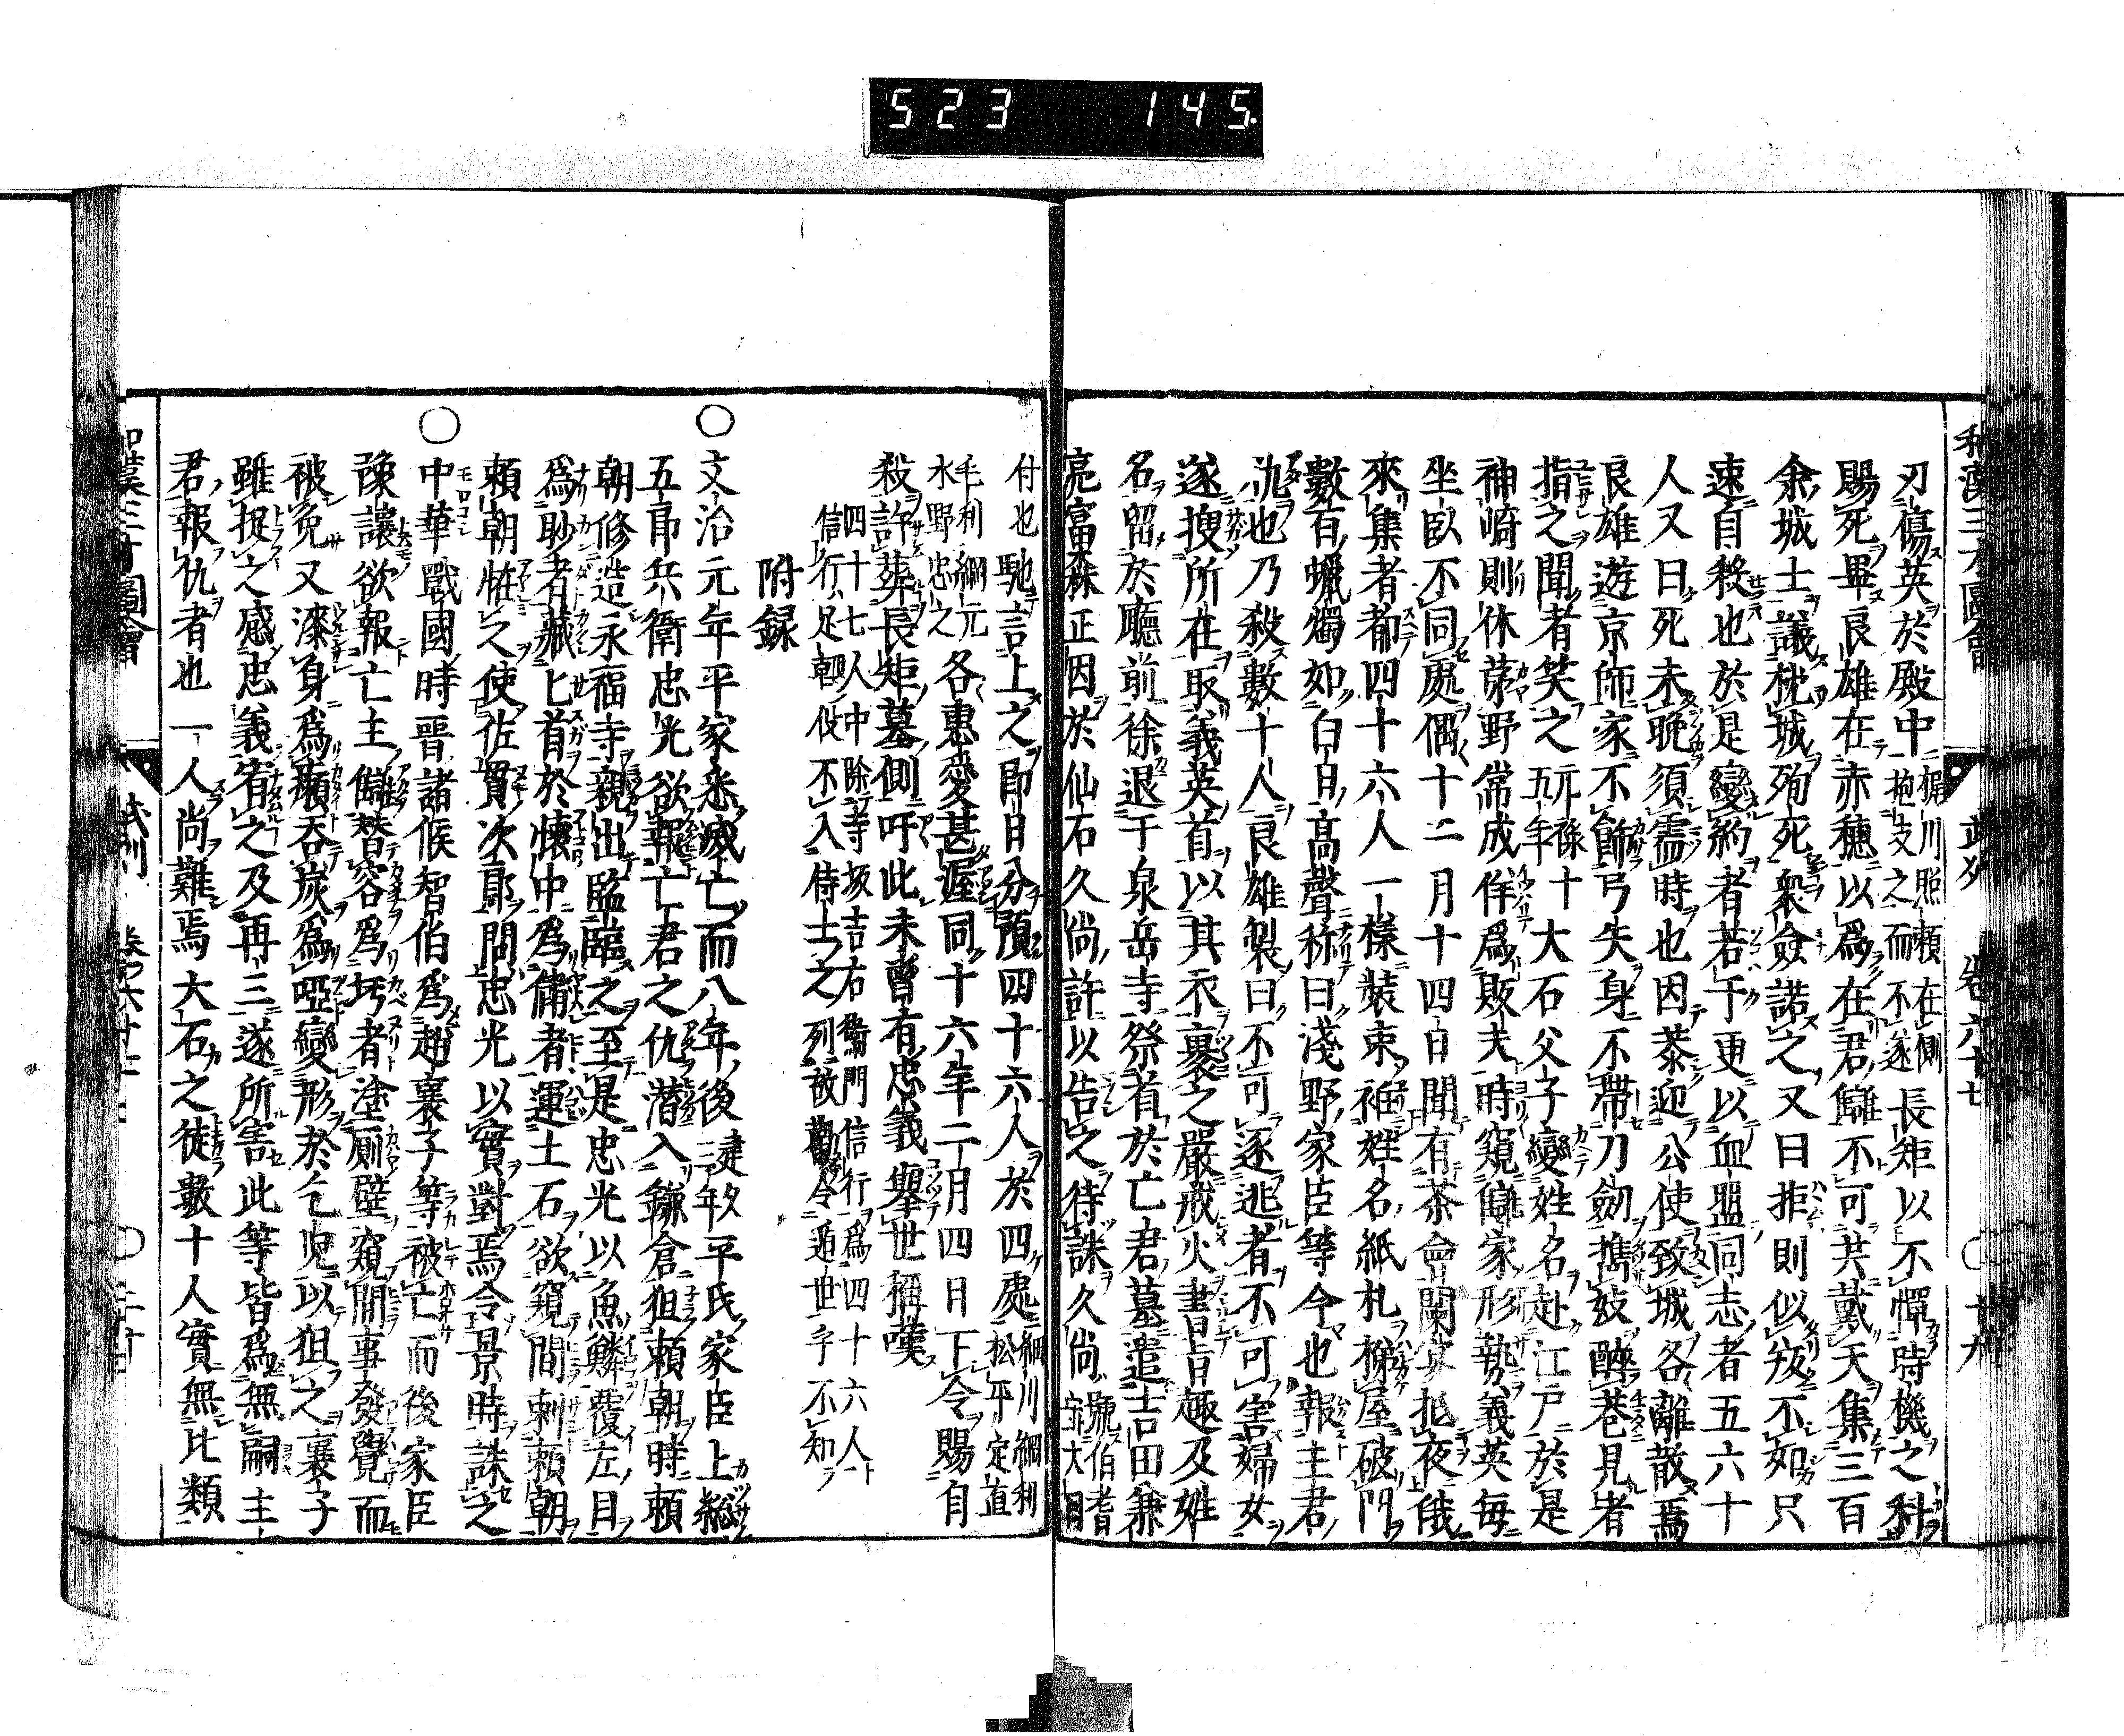 523 145.
和漢三才圖會 武州 卷六十七 ○ 十九
刃傷英於殿中梶川照頼在側抱支之而不遂長矩以不憚時機之科
賜死畢良雄在赤穗以爲在君讎不可共戴天集三百
余城士議枕城殉死衆僉諾之又曰拒則似叛不如只
速自殺也於是變約者若干更以血盟同志者五六十
人又曰死未晚須需時也因恭迎公使致城各離散焉
良雄遊京師家不餝弓失身不帶刀劒携妓醉巷見者
指之聞者笑之元禄十五年大石父子變姓名赴江戸於是
神崎則休茅野常成佯爲販夫時窺讎家形勢義英毎
坐臥不同處偶十二月十四日聞有茶會闌宴犯夜俄
來集者都四十六人一樣裝束袖姓名紙札梯屋破門
數百蠟燭如白日高聲称曰淺野家臣等今也報主君
仇也乃殺數十人良雄製曰不可逐逃者不可害婦女
遂搜所在取義英首以其衣裹之嚴戒火書旨趣及姓
名留於廳前徐退于泉岳寺祭首於亡君墓遣吉田兼
亮富森正因於仙石久尚許以告之待誅久尚號伯耆守大目
付也馳言上之即日分預四十六人於四處細川綱利松平定直
毛利綱元水野忠之各惠愛甚渥同十六年二月四日下令賜自
殺許葬長矩墓側吁此未曽有忠義舉世稱嘆
四十七人中除寺坂吉右衞門信行爲四十六人
信行足輕役不入侍士之列故勸令遁世乎不知
附録
○文治元年平家悉滅亡而八年後建久三年平氏家臣上総
五郎兵衞忠光欲報亡君之仇潜入鎌倉狙頼朝時頼
朝修造永福寺親出臨之至是忠光以魚鱗覆左目
爲眇者藏匕首於懐中爲傭者運土石欲窺間刺頼朝
頼朝恠之使佐貫次郎問忠光以實對焉令景時誅之
○中華戰國時晉諸候智伯爲趙襄子等被亡而後家臣
豫讓欲報亡主讎替容爲圬者塗廁壁窺間事發覺而
被免又漆身爲癩呑炭爲啞變形於乞児以狙之襄子
雖捉之感忠義宥之及再三遂所害此等皆爲無嗣主
君報仇者也一人尚難焉大石之徒數十人實無比類
和漢三才圖會 武州